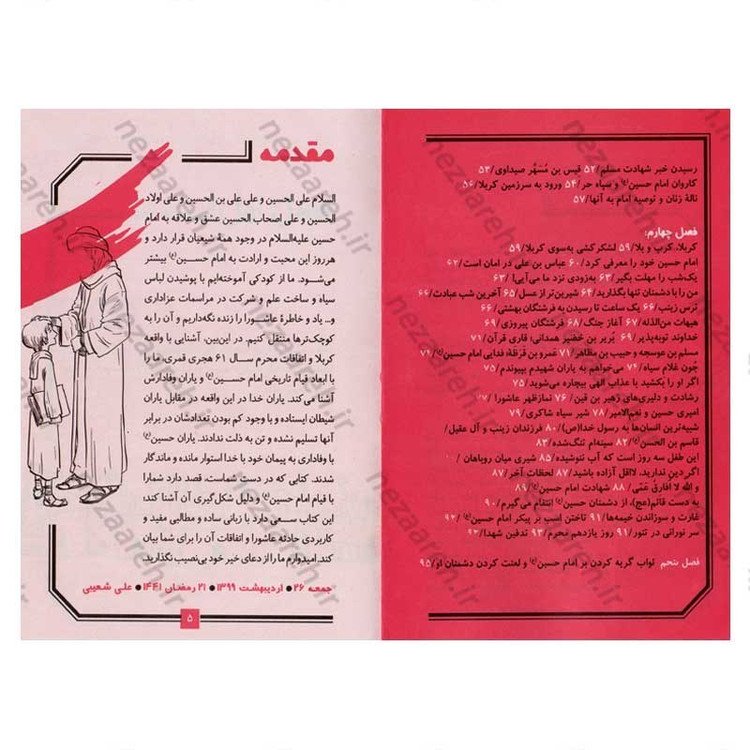 رسیدن خبر شهادت مسلم/ ۵۲ قیس بن مُسَهَّر صیداوی/ ۵۳
کاروان امام حسین(ع) و سپاه حر/ ۵۴ ورود به سرزمین کربلا/ ۵۶
نالهٔ زنان و توصیه امام به آنها/ ۵۷
فصل چهارم:
کربلا، کرب و بلا/ ۵۹ لشکرکشی به‌سوی کربلا/ ۵۹
امام حسین خود را معرفی کرد/ ۶۰ عباس بن علی در امان است/ ۶۲
یک‌شب را مهلت بگیر/ ۶۳ به‌زودی نزد ما می‌آیی!/ ۶۳
من را با دشمنان تنها بگذارید/ ۶۴ شیرین‌تر از عسل/ ۶۵ آخرین شب عبادت/ ۶۶
تُرس زینب/ ۶۶ یک ساعت تا رسیدن به فرشتگان بهشتی/ ۶۶
هیهات من‌الذله/ ۶۷ آغاز جنگ/ ۶۸ فرشتگان پیروزی/ ۶۹
خداوند توبه‌پذیر/ ۶۹ بُریر بن خُضَیر همدانی؛ قاری قرآن/ ۷۱
مسلم بن عوسجه و حبیب بن مظاهر/ ۷۱ عَمرو بن قَرَظَه؛ فدایی امام حسین(ع)/
جُون غلام سیاه/ ۷۴ می‌خواهم به یاران شهیدم بپیوندم/ ۷۵
اگر او را بکشید با عذاب الهی بیچاره می‌شوید/ ۷۵
رشادت و دلیری‌های زهیر بن قین/ ۷۶ نمازظهر عاشورا/
امیری حسین و نعم‌الامیر/ ۷۸ شیر سیاه شاکری/ ۷۹
شبیه‌ترین انسان‌ها به رسول خدا(ص)/ ۸۰ فرزندان زینب و آل عقیل/
قاسم بن الحسن(ع)/ ۸۲ سینه‌ام تنگ‌شده/ ۸۳
این طفل سه روز است که آب ننوشیده/ ۸۵ شیری میان روباهان/
اگر دین ندارید، لااقل آزاده باشید/ ۸۷ لحظات آخر/ ۸۷
و الله لا افارق عَمّی/ ۸۸ شهادت امام حسین(ع)/ ۸۹
به دست قائم(عج)، از دشمنان حسین(ع) انتقام می‌گیرم/ ۹۰
غارت و سوزاندن خیمه‌ها/ ۹۱ تاختن اسب بر پیکر امام حسین(ع)/ ۹۲
سر نورانی در تنور/ ۹۱ روز یازدهم محرم/ ۹۳ تدفین شهدا/
فصل پنجم ثواب گریه کردن بر امام حسین(ع) و لعنت کردن دشمنان او/ ۹۵
مقدمه
السلام علی الحسین و علی علی بن الحسین و علی اولاد
الحسین و علی اصحاب الحسین عشق و علاقه به امام
حسین علیه‌السلام در وجود همهٔ شیعیان قرار دارد و
هرروز این محبت و ارادت به امام حسین(ع) بیشتر
می‌شود. ما از کودکی آموخته‌ایم با پوشیدن لباس
سیاه و ساخت علم و شرکت در مراسمات عزاداری
و... یاد و خاطرهٔ عاشورا را زنده نگه‌داریم و آن را به
کوچک‌ترها منتقل کنیم. در این‌بین، آشنایی با واقعه
کربلا و اتفاقات محرم سال ۶۱ هجری قمری، ما را
با ابعاد قیام تاریخی امام حسین(ع) و یاران وفادارش
آشنا می‌کند. یاران خدا در این واقعه در مقابل یاران
شیطان ایستاده و با وجود کم بودن تعدادشان در برابر
آنها تسلیم نشده و تن به ذلت ندادند. یاران حسین(ع)
با وفاداری به پیمان خود با خدا استوار مانده و ماندگار
شدند. کتابی که در دست شماست، قصد دارد شما را
با قیام امام حسین(ع) و دلیل شکل‌گیری آن آشنا کند؛
این کتاب سعی دارد با زبانی ساده و مطالبی مفید و
کاربردی حادثه عاشورا و اتفاقات آن را برای شما بیان
کند. امیدوارم ما را از دعای خیر خود بی‌نصیب نگذارید.
جمعه ۲۶ اردیبهشت ۱۳۹۹ • ۲۱ رمضان ۱۴۴۱ • علی شعیبی
۵
nezaareh.ir